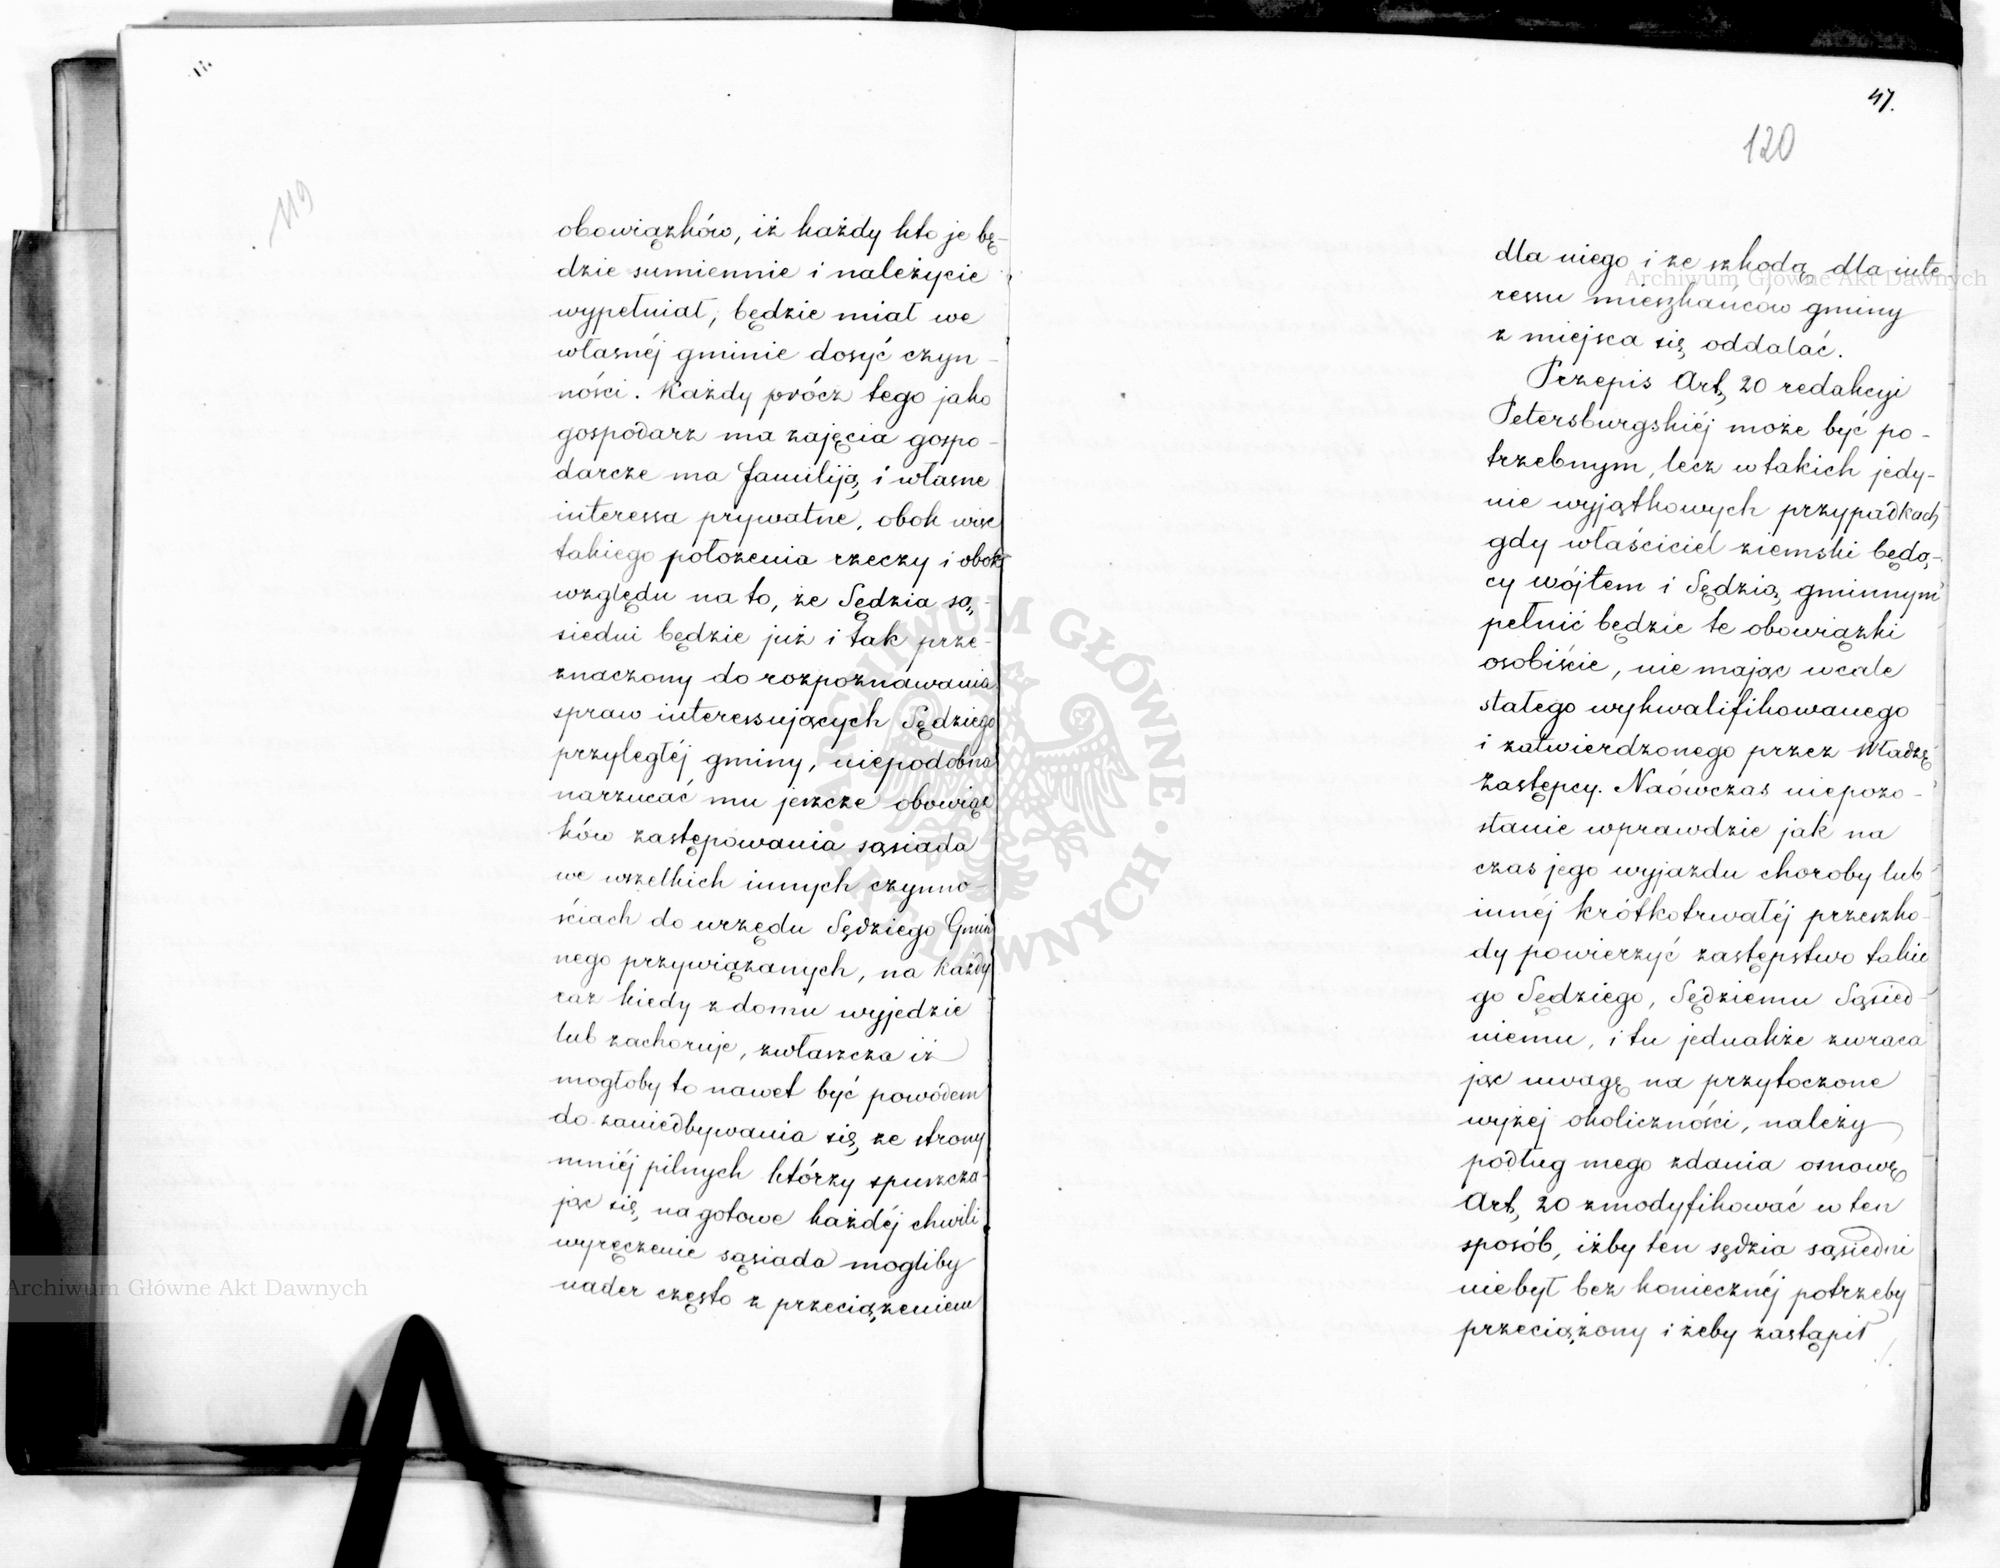 119
obowiązków, iż każdy kto je bę-
dzie sumiennie i należycie
wypełniał, będzie miał we
własnéj gminie dosyć czyn-
ności. Każdy prócz tego jako
gospodarz ma zajęcia gospo-
darcze ma familiją i własne
interessa prywatne, obok więc
takiego położenia rzeczy i obok
względu na to, że Sędzia są-
siedni będzie już i tak prze-
znaczony do rozpoznawania
spraw interessujących Sędziego
przyległéj gminy, niepodobna
narzucać mu jeszcze obowiąz
ków zastępowania sąsiada
we wszelkich innych czynno-
ściach do urzędu Sędziego Gmin
nego przywiązanych, na każdy
raz kiedy z domu wyjedzie
lub zachoruje, zwłaszcza iż
mogłoby to nawet być powodem
do zaniedbywania się ze strony
mniéj pilnych którzy spuszcza-
jąc się na gotowe każdéj chwili
wyręczenie sąsiada mogliby
nader często z przeciążeniem
47.
120
dla niego i ze szkodą dla inte-
ressu mieszkańców gminy
z miejsca się oddalać.
Przepis Art, 20 redakcyi
Petersburgskiéj może być po-
trzebnym, lecz w takich jedy-
nie wyjątkowych przypadkach
gdy właściciel ziemski będą-
cy wójtem i Sędzią gminnym
pełnić będzie te obowiązki
osobiście, nie mając wcale
stałego wykwalifikowanego
i zatwierdzonego przez Władzę
zastępcy. Naówczas niepozo-
stanie wprawdzie jak na
czas jego wyjazdu choroby lub
innéj krótkotrwałéj przeszko-
dy powierzyć zastępstwo takie
go Sędziego, Sędziemu Sąsied-
niemu, i tu jednakże zwraca
jąc uwagę na przytoczone
wyżej okoliczności, należy
podług mego zdania osnowę
Art, 20 zmodyfikować w ten
sposób, iżby ten sędzia sąsiedni
niebył bez koniecznéj potrzeby
przeciążony i żeby zastąpił
Archiwum Główne Akt Dawnych
Archiwum Główne Akt Dawnych
ARCHIWUM GŁÓWNE AKT DAWNYCH